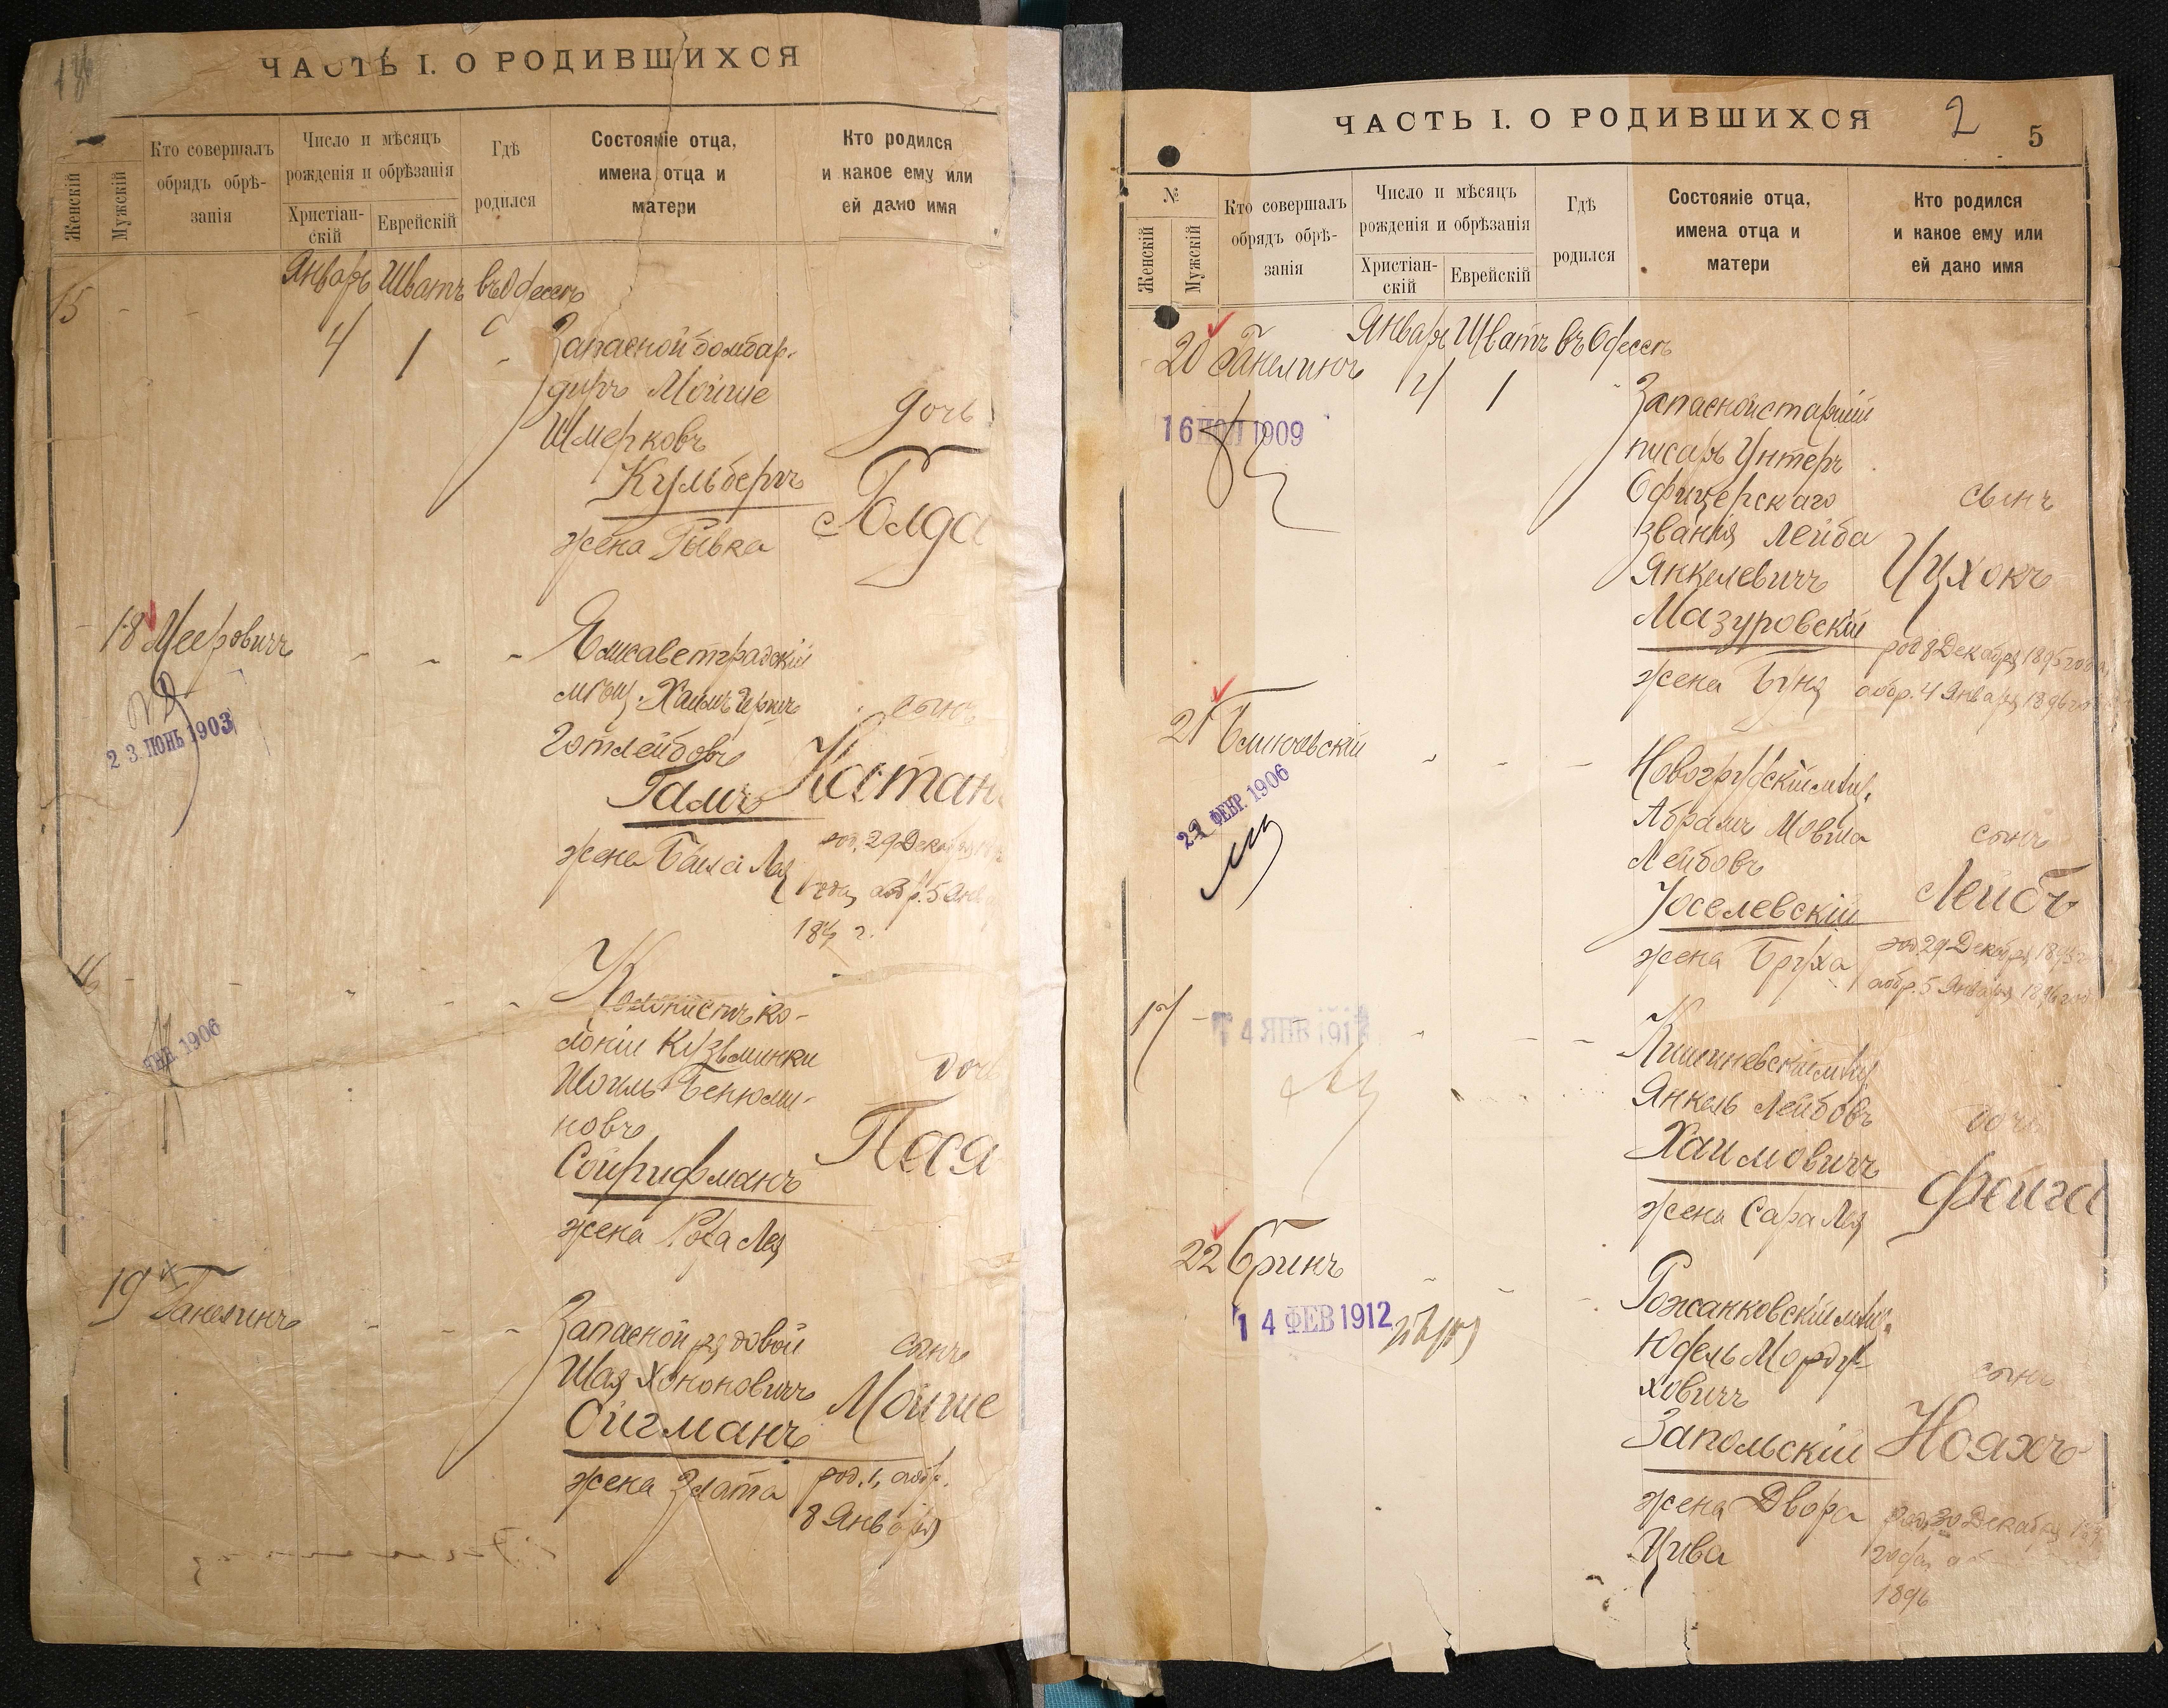 ЧАСТЬ I. О РОДИВШИХСЯ
Женскій
Мужскій
Кто совершалъ
обрядъ обрѣ-
занія
Число и мѣсяцъ
рожденія и обрѣзанія
Христіан-
скій
Еврейскій
Гдѣ
родился
Состояніе отца,
имена отца и
матери
Кто родился
и какое ему или
ей дано имя
Январь Шватъ въ Одессѣ
15
4 1
Запасной бомбар-
диръ Мойше
Шмерковъ
Кульбергъ
жена Рывка
дочь
Голда
18 Мееровичъ
23 ІЮНЬ 1903
Елисаветградскій
мѣщ. Хаимъ Герша
Готлейбовъ
Гамъ
жена Бася Лея
сынъ
Натан
род. 29 Декабря
года, обр. 5 Янв
16
ЯНВ 1906
Колонистъ ко-
лоніи Кузьминки
Шоилъ Бенюми-
новъ
Сойрифманъ
жена Роза Лея
дочь
Песя
19 Ганелинъ
Запасной рядовой
Шая Хононовичъ
Сигманъ
жена Злата
сынъ
Мойше
род. 1, обр.
8 Января
ЧАСТЬ I. О РОДИВШИХСЯ
2
5
№
Женскій
Мужскій
Кто совершалъ
обрядъ обрѣ-
занія
Число и мѣсяцъ
рожденія и обрѣзанія
Христіан-
скій
Еврейскій
Гдѣ
родился
Состояніе отца,
имена отца и
матери
Кто родился
и какое ему или
ей дано имя
Январь Шватъ въ Одессѣ
20 Ганелинъ
4 1
16 1909
Запасной старшій
писарь Унтеръ
Офицерскаго
званія Лейба
Янкелевичъ
Мазуровскій
жена Буня
сынъ
Ицхокъ
род 8 Декабря 1895 года
обр. 4 Января 1896 го
21
ФЕВР. 1906
Новогрудскій мѣщ.
Абрамъ Мовша
Лейбовъ
Іоселевскій
жена Бруха
сынъ
Лейбъ
род 29 Декабря 1895 г
обр. 5 Января 1896 год
17
4 ЯНВ 191
Кишиневскій мѣщ.
Янкель Лейбовъ
Хаимовичъ
жена Сара Лея
дочь
Фейга
22 Гринъ
14 ФЕВ 1912
Рожанковскій мѣщ.
Юдель Морду-
ховичъ
Запольскій
жена Двора
Цива
сынъ
Нояхъ
род. 30 Декабря
года
1896